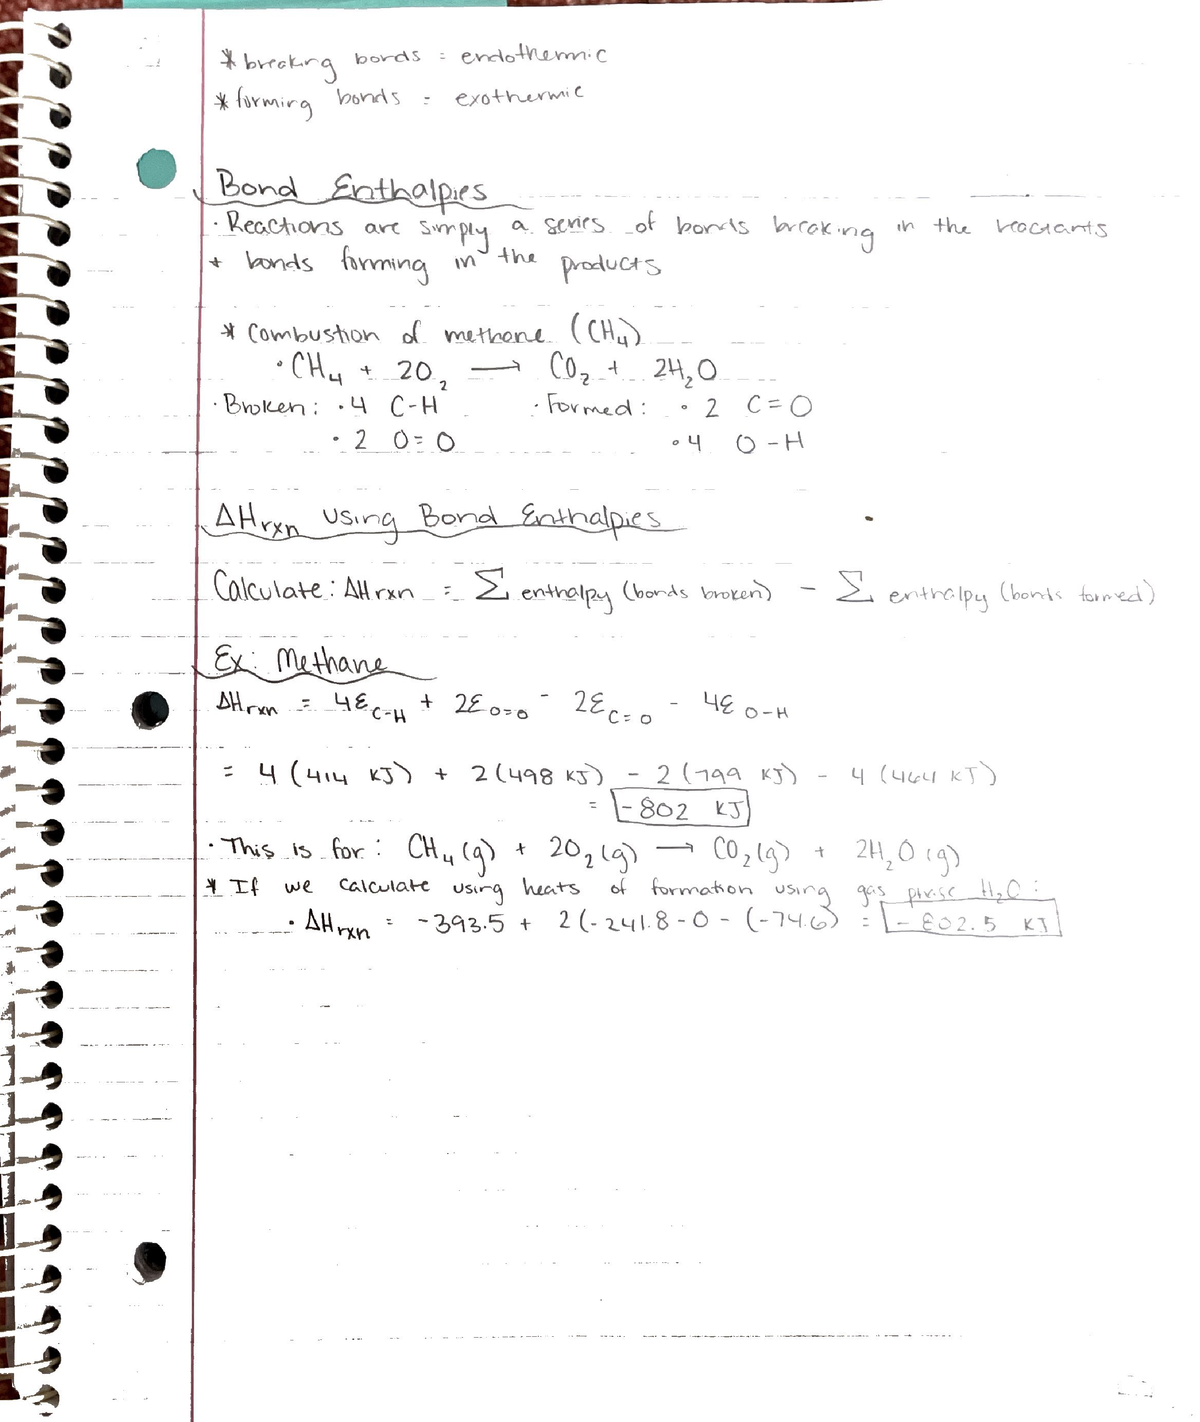 * breaking bonds = endothermic
* forming bonds = exothermic
Bond Enthalpies
· Reactions are simply a series of bonds breaking in the reactants
+ bonds forming in the products
* Combustion of methane (CH₄)
· CH₄ + 2O₂ → CO₂ + 2H₂O
· Broken: · 4 C-H · Formed: · 2 C=O
· 2 O=O · 4 O-H
ΔHrxn using Bond Enthalpies
Calculate: ΔHrxn = Σ enthalpy (bonds broken) - Σ enthalpy (bonds formed)
Ex: Methane
ΔHrxn = 4ε C-H + 2ε O=O - 2ε C=O - 4ε O-H
= 4 (414 KJ) + 2 (498 KJ) - 2 (799 KJ) - 4 (464 KJ)
= -802 KJ
· This is for: CH₄(g) + 2O₂(g) → CO₂(g) + 2H₂O(g)
* If we calculate using heats of formation using gas phase H₂O:
· ΔHrxn = -393.5 + 2(-241.8 - 0 - (-74.6) = -802.5 KJ